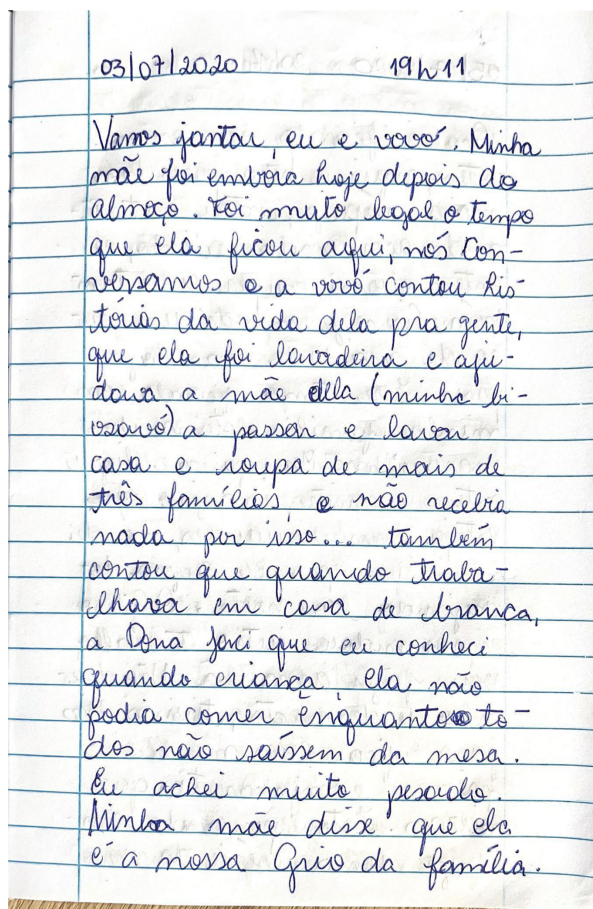 03/07/2020 19h11
Vamos jantar, eu e vovó. Minha
mãe foi embora hoje depois do
almoço. Foi muito legal o tempo
que ela ficou aqui, nós con-
versamos e a vovó contou his
tórias da vida dela pra gente,
que ela foi lavadeira e aju-
dava a mãe dela (minha bi-
savó) a passar e lavar
casa e roupa de mais de
três famílias e não recebia
nada por isso... também
contou que quando traba-
lhava em casa de branca,
a Dona Joci que eu conheci
quando criança, ela não
podia comer enquanto to-
dos não saíssem da mesa.
Eu achei muito pesado.
Minha mãe disse que ela
é a nossa Grio da família.